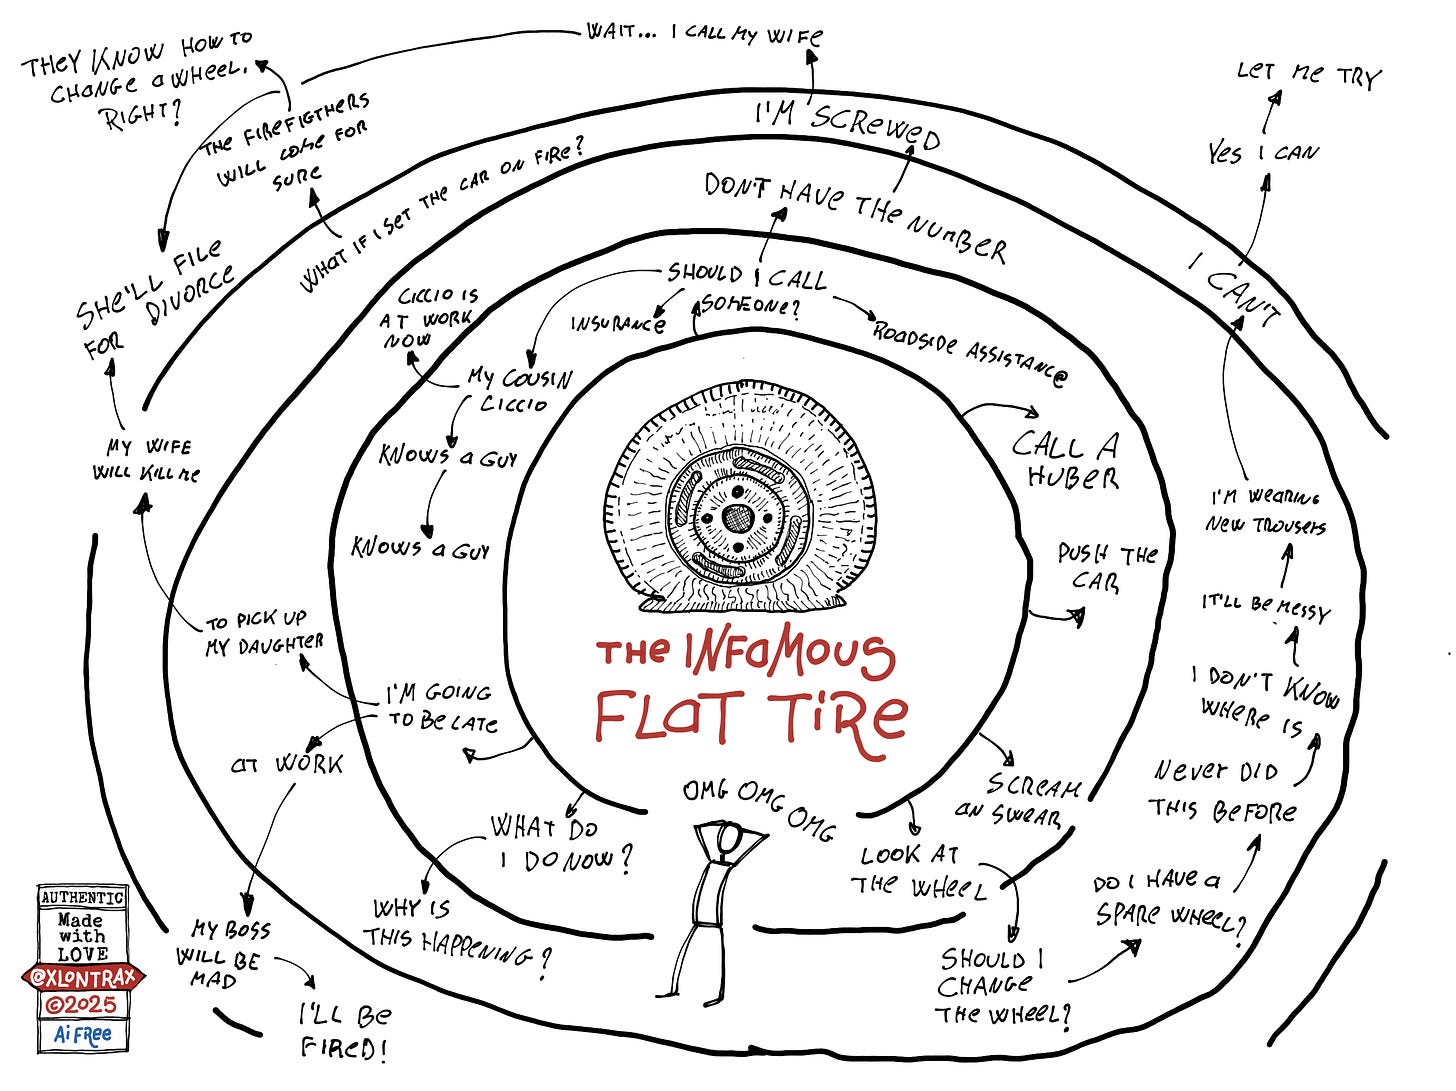 WAIT... I CALL MY WIFE
THEY KNOW HOW TO
CHANGE a WHEEL,
RIGHT?
THE FIREFIGTHERS
WILL COME FOR
SURE
WHAT IF I SET THE CAR ON FIRE?
SHE'LL FILE
FOR DIVORCE
MY WIFE
WILL KILL ME
I'M SCREWED
DON'T HAVE THE NUMBER
SHOULD I CALL
SOMEONE?
INSURANCE
ROADSIDE ASSISTANCE
CICCIO IS
AT WORK
NOW
MY COUSIN
CICCIO
KNOWS a GUY
KNOWS a GUY
LET ME TRY
YES I CAN
I CAN'T
I'M WEARING
NEW TROUSERS
IT'LL BE MESSY
I DON'T KNOW
WHERE IS
NEVER DID
THIS BEFORE
DO I HAVE a
SPARE WHEEL?
CALL A
HUBER
PUSH THE
CAR
SCREAM
AN SWEAR
LOOK AT
THE WHEEL
SHOULD I
CHANGE
THE WHEEL?
THE INFAMOUS
FLAT TIRE
OMG OMG OMG
TO PICK UP
MY DAUGHTER
I'M GOING
TO BE LATE
AT WORK
MY BOSS
WILL BE
MAD
I'LL BE
FIRED!
WHAT DO
I DO NOW?
WHY IS
THIS HAPPENING?
AUTHENTIC
Made
with
LOVE
@XLONTRAX
©2025
Ai FREE